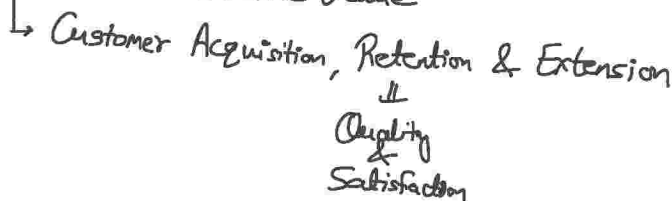 ↳ Customer Acquisition, Retention & Extension
Quality
&
Satisfaction